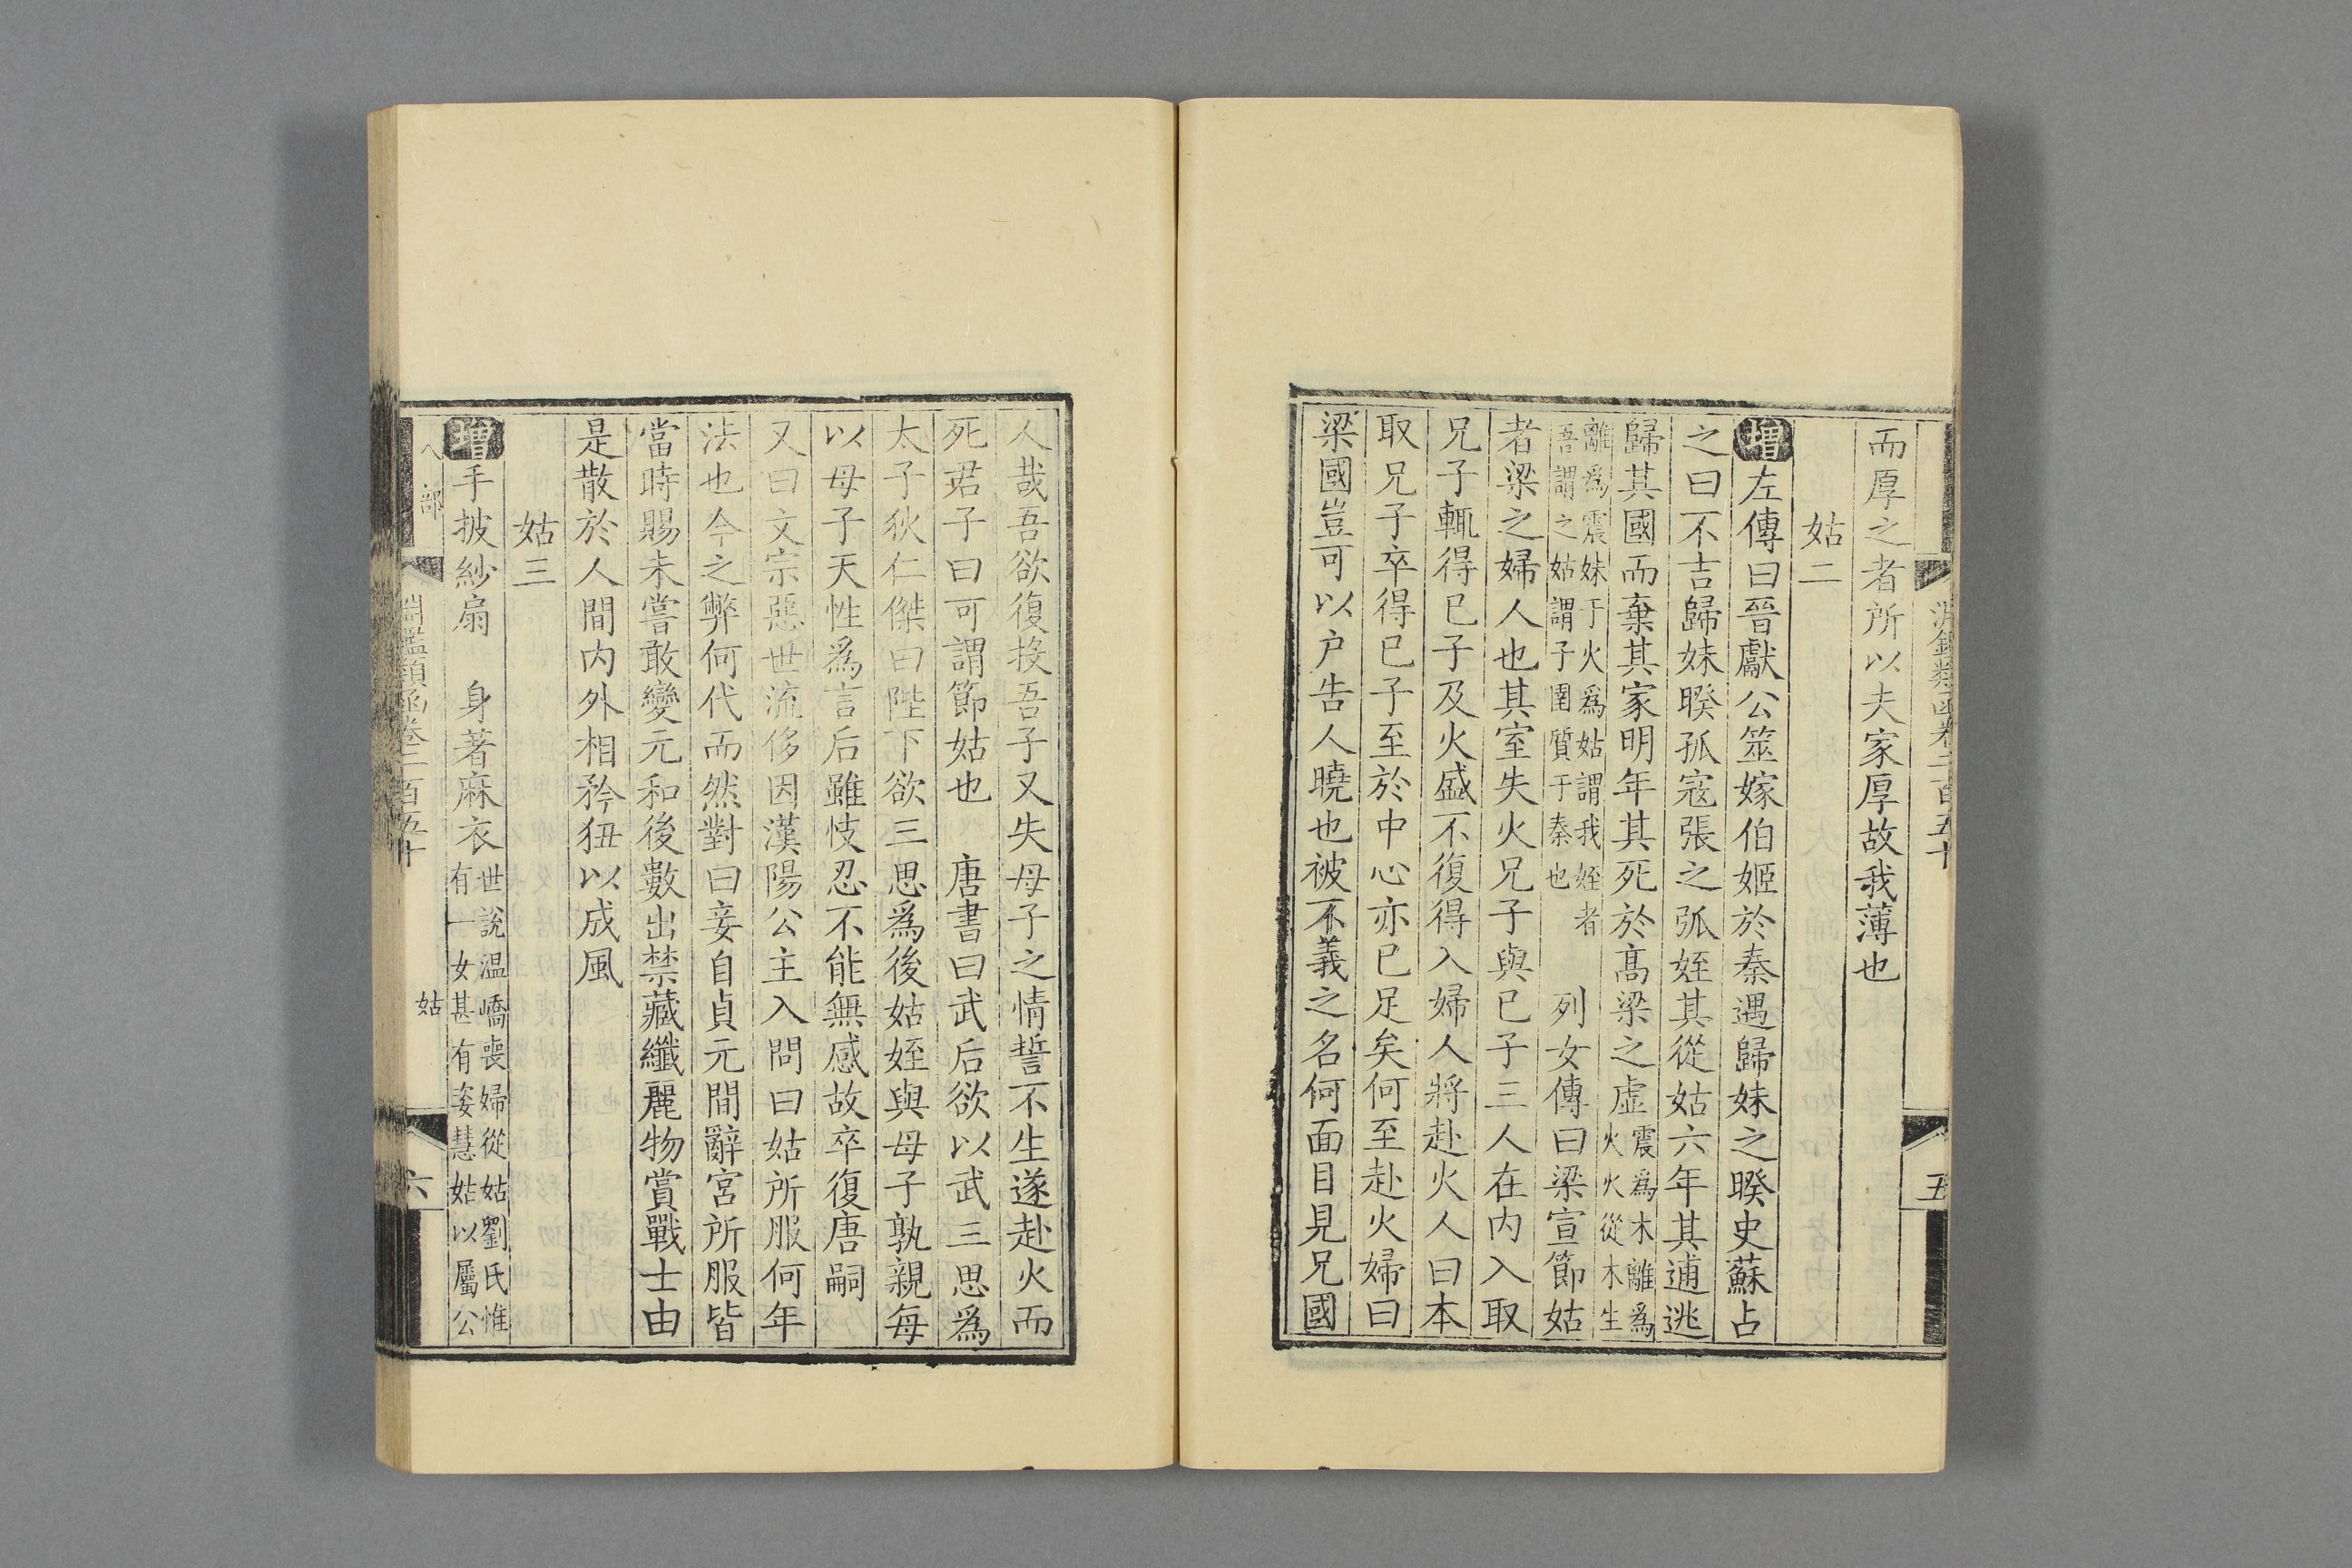 而厚之者所以夫家厚故我薄也
姑二
增左傳曰晉獻公筮嫁伯姬於秦遇歸妹之暌史蘇占
之曰不吉歸妹暌孤寇張之弧姪其從姑六年其逋逃
歸其國而棄其家明年其死於髙梁之虛震爲木離爲
火火從木生
離爲震妹于火爲姑謂我姪者
吾謂之姑謂子圉質于秦也　列女傳曰梁宣節姑
者梁之婦人也其室失火兄子與已子三人在内入取
兄子輒得已子及火盛不復得入婦人將赴火人曰本
取兄子卒得已子至於中心亦已足矣何至赴火婦曰
梁國豈可以户告人曉也被不義之名何面目見兄國
人哉吾欲復投吾子又失母子之情誓不生遂赴火而
死君子曰可謂節姑也　唐書曰武后欲以武三思爲
太子狄仁傑曰陛下欲三思爲後姑姪與母子孰親每
以母子天性爲言后雖忮忍不能無感故卒復唐嗣
又曰文宗惡世流侈因漢陽公主入問曰姑所服何年
法也今之弊何代而然對曰妾自貞元間辭宮所服皆
當時賜未嘗敢變元和後數出禁藏纖麗物賞戰士由
是散於人間内外相矜狃以成風
姑三
增手披紗扇　身著麻衣世說温嶠喪婦從姑劉氏惟
有一女甚有姿慧姑以屬公
部
淵鑑類函卷二百五十
姑
六